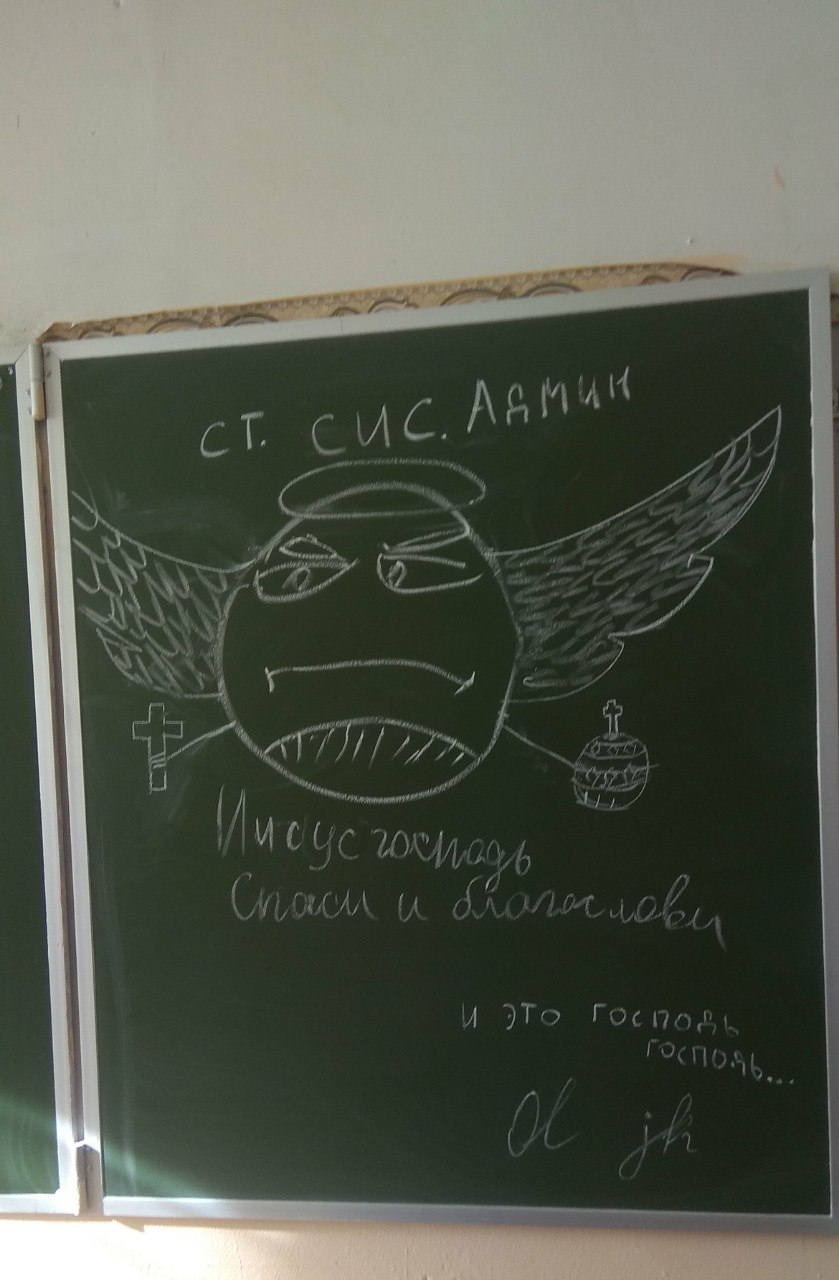 ст. сис. Админ
Иисус господь
Спаси и благослови
и это господь
господь...